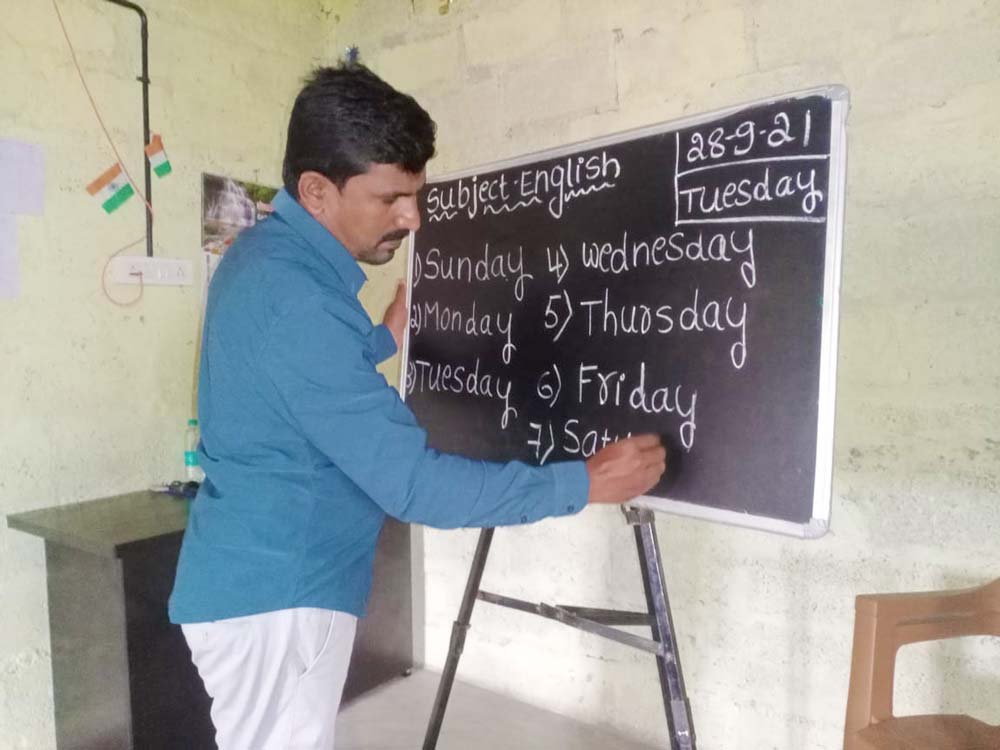 Subject:English
28-9-21
Tuesday
1) Sunday
2) Monday
3) Tuesday
4) Wednesday
5) Thursday
6) Friday
7) Satu